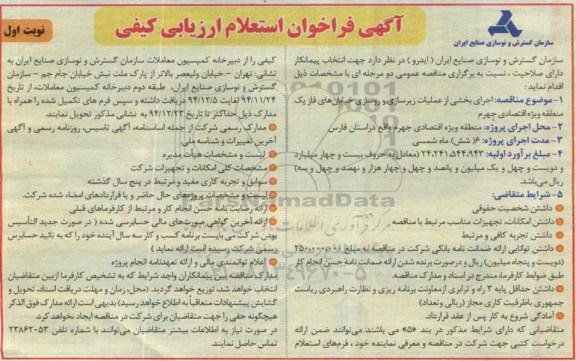 آگهی فراخوان استعلام ارزیابی کیفی
نوبت اول
سازمان گسترش و نوسازی صنایع ایران
سازمان گسترش و نوسازی صنایع ایران (ایدرو) در نظر دارد جهت انتخاب پیمانکار
دارای صلاحیت، نسبت به برگزاری مناقصه عمومی دو مرحله ای با مشخصات ذیل
اقدام نماید:
۱- موضوع مناقصه: اجرای بخشی از عملیات زیرسازی و روسازی خیابان‌های فاز یک
منطقه ویژه اقتصادی جهرم
۲- محل اجرای پروژه: منطقه ویژه اقتصادی جهرم واقع در استان فارس
۳- مدت اجرای پروژه: ۶ (شش) ماه شمسی
۴- مبلغ برآورد اولیه: ۲۴،۲۴۱،۵۴۴،۹۴۳ (معادل به حروف بیست و چهار میلیارد
و دویست و چهل و یک میلیون و پانصد و چهل و چهار هزار و نهصد و چهل و سه)
ریال می‌باشد
۵- شرایط متقاضی:
داشتن شخصیت حقوقی
داشتن امکانات، تجهیزات مناسب مرتبط با مناقصه
داشتن تجربه کافی و مرتبط
داشتن توانایی ارائه ضمانت نامه بانکی شرکت در مناقصه به مبلغ
(دویست و پنجاه میلیون) ریال و درصورت برنده شدن ارائه ضمانت نامه حسن انجام کار
طبق ضوابط کارفرما، مندرج در اسناد و مدارک مناقصه
داشتن حداقل پایه ۴ راه و ترابری از معاونت برنامه ریزی و نظارت راهبردی ریاست
جمهوری با ظرفیت کاری مجاز (ریالی و تعداد)
آمادگی شروع به کار پس از عقد قرارداد.
متقاضیانی که دارای شرایط مذکور در بند «۵» می باشند می‌توانند ضمن ارائه
درخواست کتبی جهت شرکت در مناقصه و معرفی نماینده خود، فرم‌های استعلام
کیفی را از دبیرخانه کمیسیون معاملات سازمان گسترش و نوسازی صنایع ایران به
نشانی: تهران – خیابان ولیعصر بالاتر از پارک ملت نبش خیابان جام جم – سازمان
گسترش و نوسازی صنایع ایران، طبقه دوم دبیرخانه کمیسیون معاملات، از تاریخ
۹۴/۱۱/۲۴ لغایت ۹۴/۱۲/۵ دریافت داشته و سپس فرم های تکمیل شده را همراه با
مدارک ذیل حداکثر تا تاریخ ۹۴/۱۲/۲۳ به نشانی مذکور تحویل نمایند.
مدارک رسمی شرکت از جمله اساسنامه، آگهی تاسیس، روزنامه رسمی و آگهی
آخرین تغییرات و شناسه ملی
لیست و مشخصات هیأت مدیره
مشخصات کلی امکانات و تجهیزات شرکت
سوابق و تجربه کاری مفید و مرتبط در پنج سال گذشته
لیست و مشخصات پروژه‌های حال حاضر و یا قراردادهای امضاء شده شرکت.
ارائه رضایت نامه حسن انجام کار و مرتبط از کارفرماهای قبلی
ارائه آخرین گواهی صورت‌های مالی حسابرسی شده (در صورت جدید التأسیس
بودن شرکت می بایست برنامه کسب و کار سه سال آینده خود را که به تائید حسابرس
رسمی شرکت رسیده است ارائه نماید)
اعلام توانمندی مالی و ارائه تعهدنامه انجام پروژه
مدارک مناقصه بین پیمانکاران واجد شرایط که به تشخیص کارفرما ازبین متقاضیان
انتخاب خواهد شد، توزیع خواهد گردید (محل، زمان و مهلت دریافت اسناد، تحویل و
گشایش پیشنهادات متعاقباً به اطلاع خواهد رسید) بدیهی است ارائه مدارک فوق الذکر
هیچگونه حقی را جهت متقاضیان برای شرکت در مناقصه ایجاد نخواهد کرد.
در صورت نیاز به اطلاعات بیشتر متقاضیان می‌توانند با شماره تلفن ۲۳۸۶۲۰۵۳
تماس حاصل نمایند.